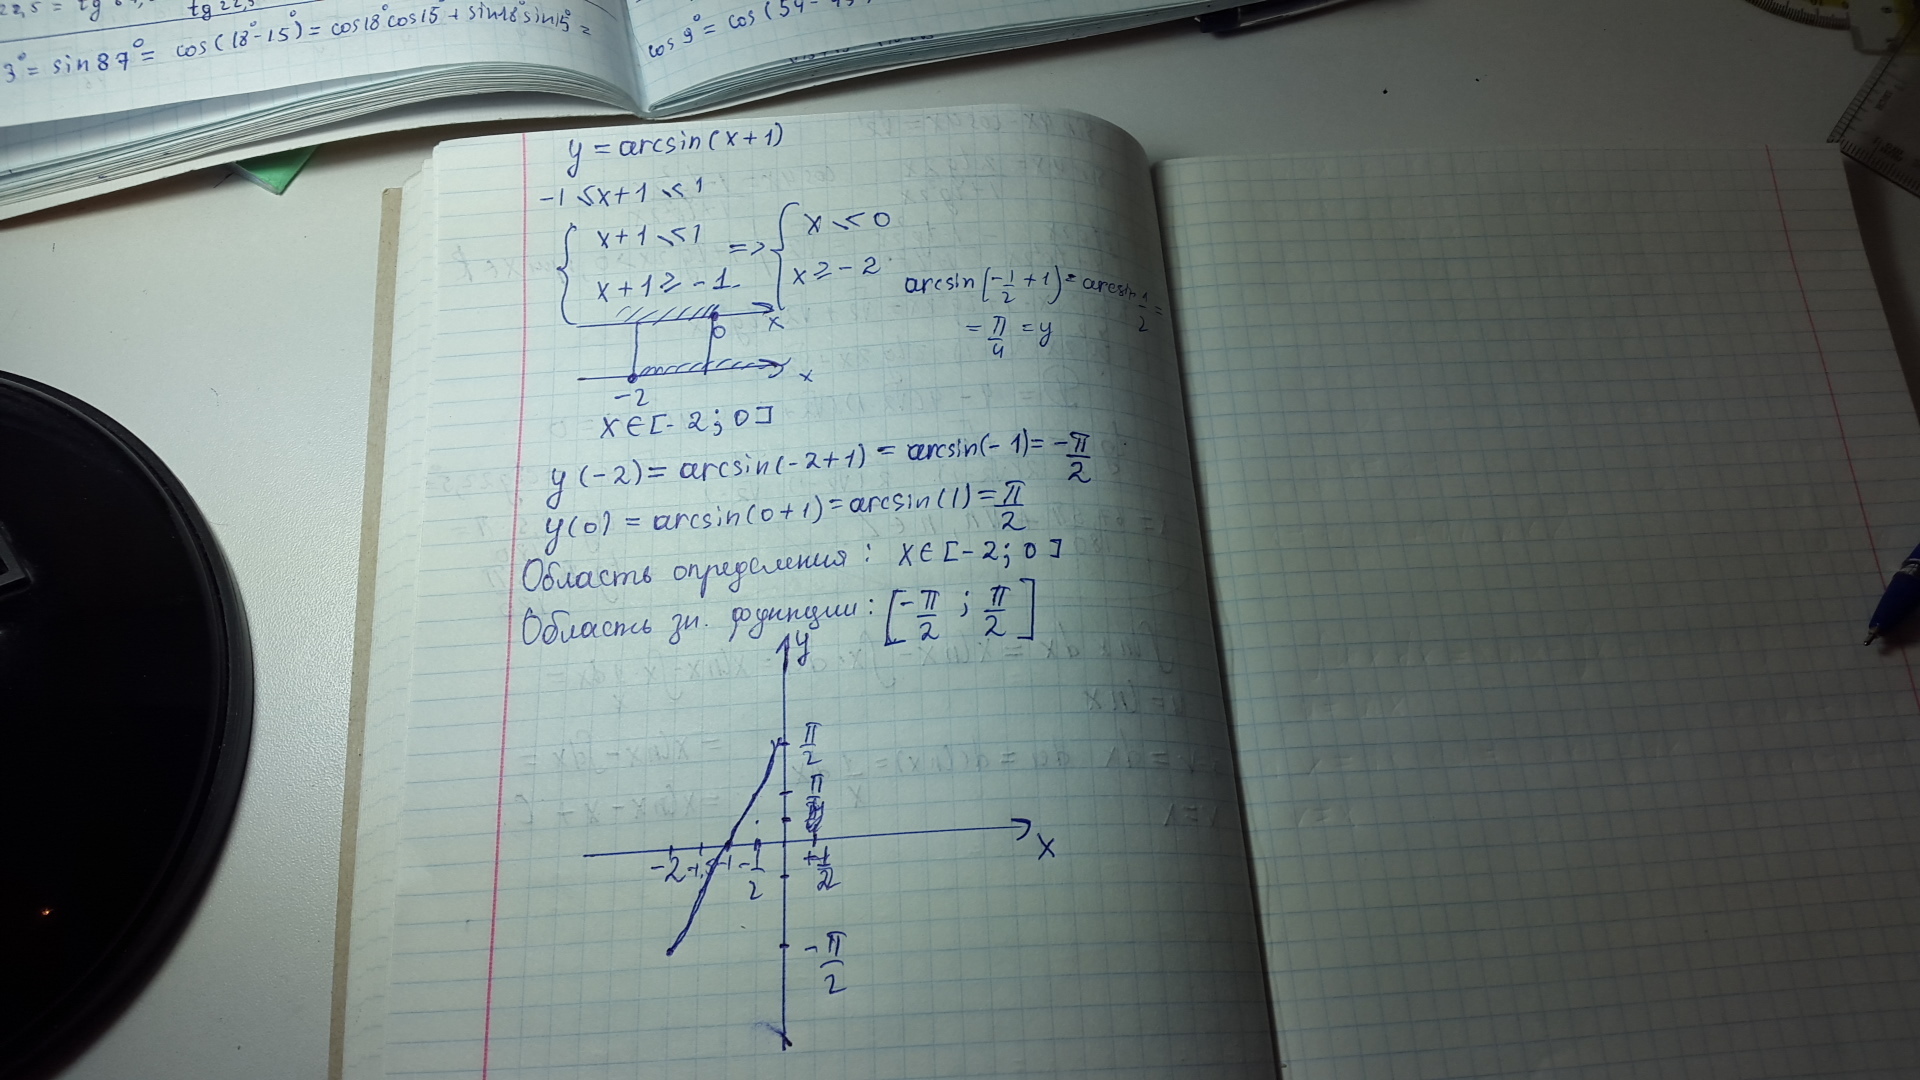 22,5 = tg
tg 22,5
3° = sin 87° = cos(18°-15°) = cos18°cos15° + sin18°sin15° =
cos 9° = cos(54-45
y = arcsin(x+1)
-1 ≤ x+1 ≤ 1
{ x+1 ≤ 1 => { x ≤ 0
x+1 ≥ -1 x ≥ -2
arcsin(-1/2 + 1) = arcsin 1/2 =
= π/4 = y
0 x
-2 x
x ∈ [-2; 0]
y(-2) = arcsin(-2+1) = arcsin(-1) = -π/2
y(0) = arcsin(0+1) = arcsin(1) = π/2
Область определения: x ∈ [-2; 0]
Область зн. функции: [-π/2; π/2]
y
π/2
-2 -1,5 -1 -1/2 +1/2 x
-π/2